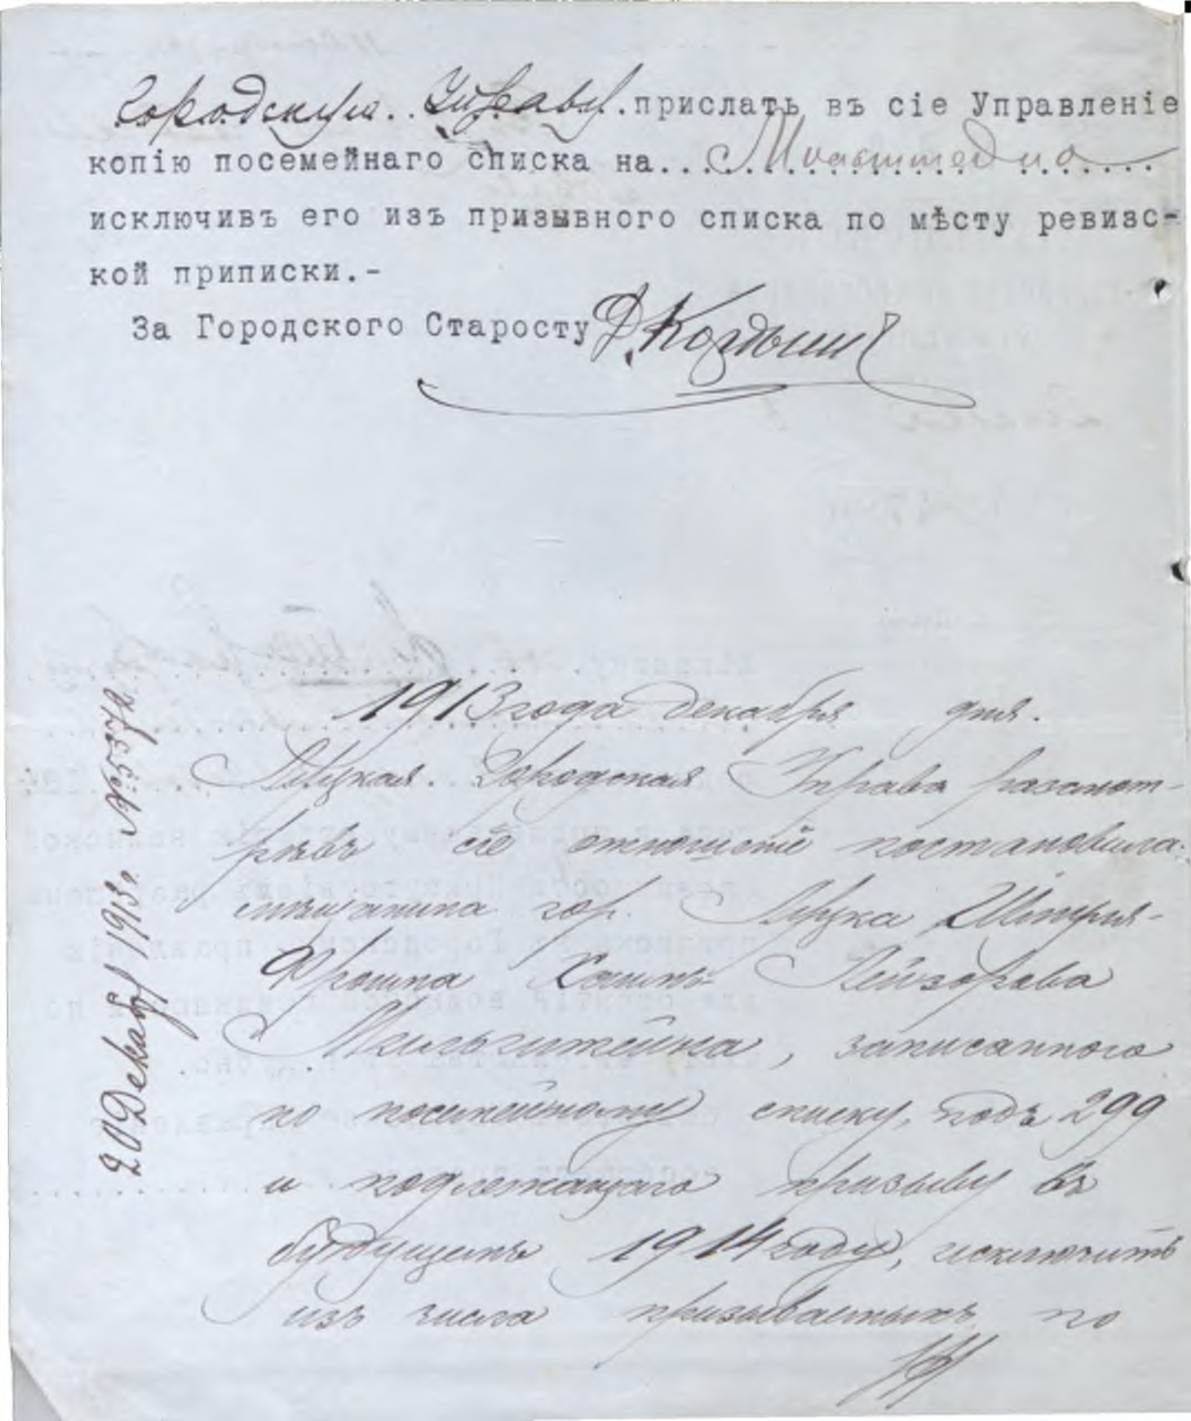 Городскую Управу прислать въ сіе Управленіе
копію посемейнаго списка на
исключивъ его изъ призывного списка по мѣсту ревизс-
кой приписки.-
За Городского Старосту
1913 года декабря дня.
Луцкая Городская Управа разсмот-
рѣвъ сіе отношеніе постановила:
мѣщанина гор. Луцка
Хаима Лейзорова
Мильштейна, записаннаго
по посемейному списку подъ 299
и подлежащаго призыву въ
будущемъ 1914 году, исключить
изъ числа призываемыхъ по
20 Декабря 1913 г. №